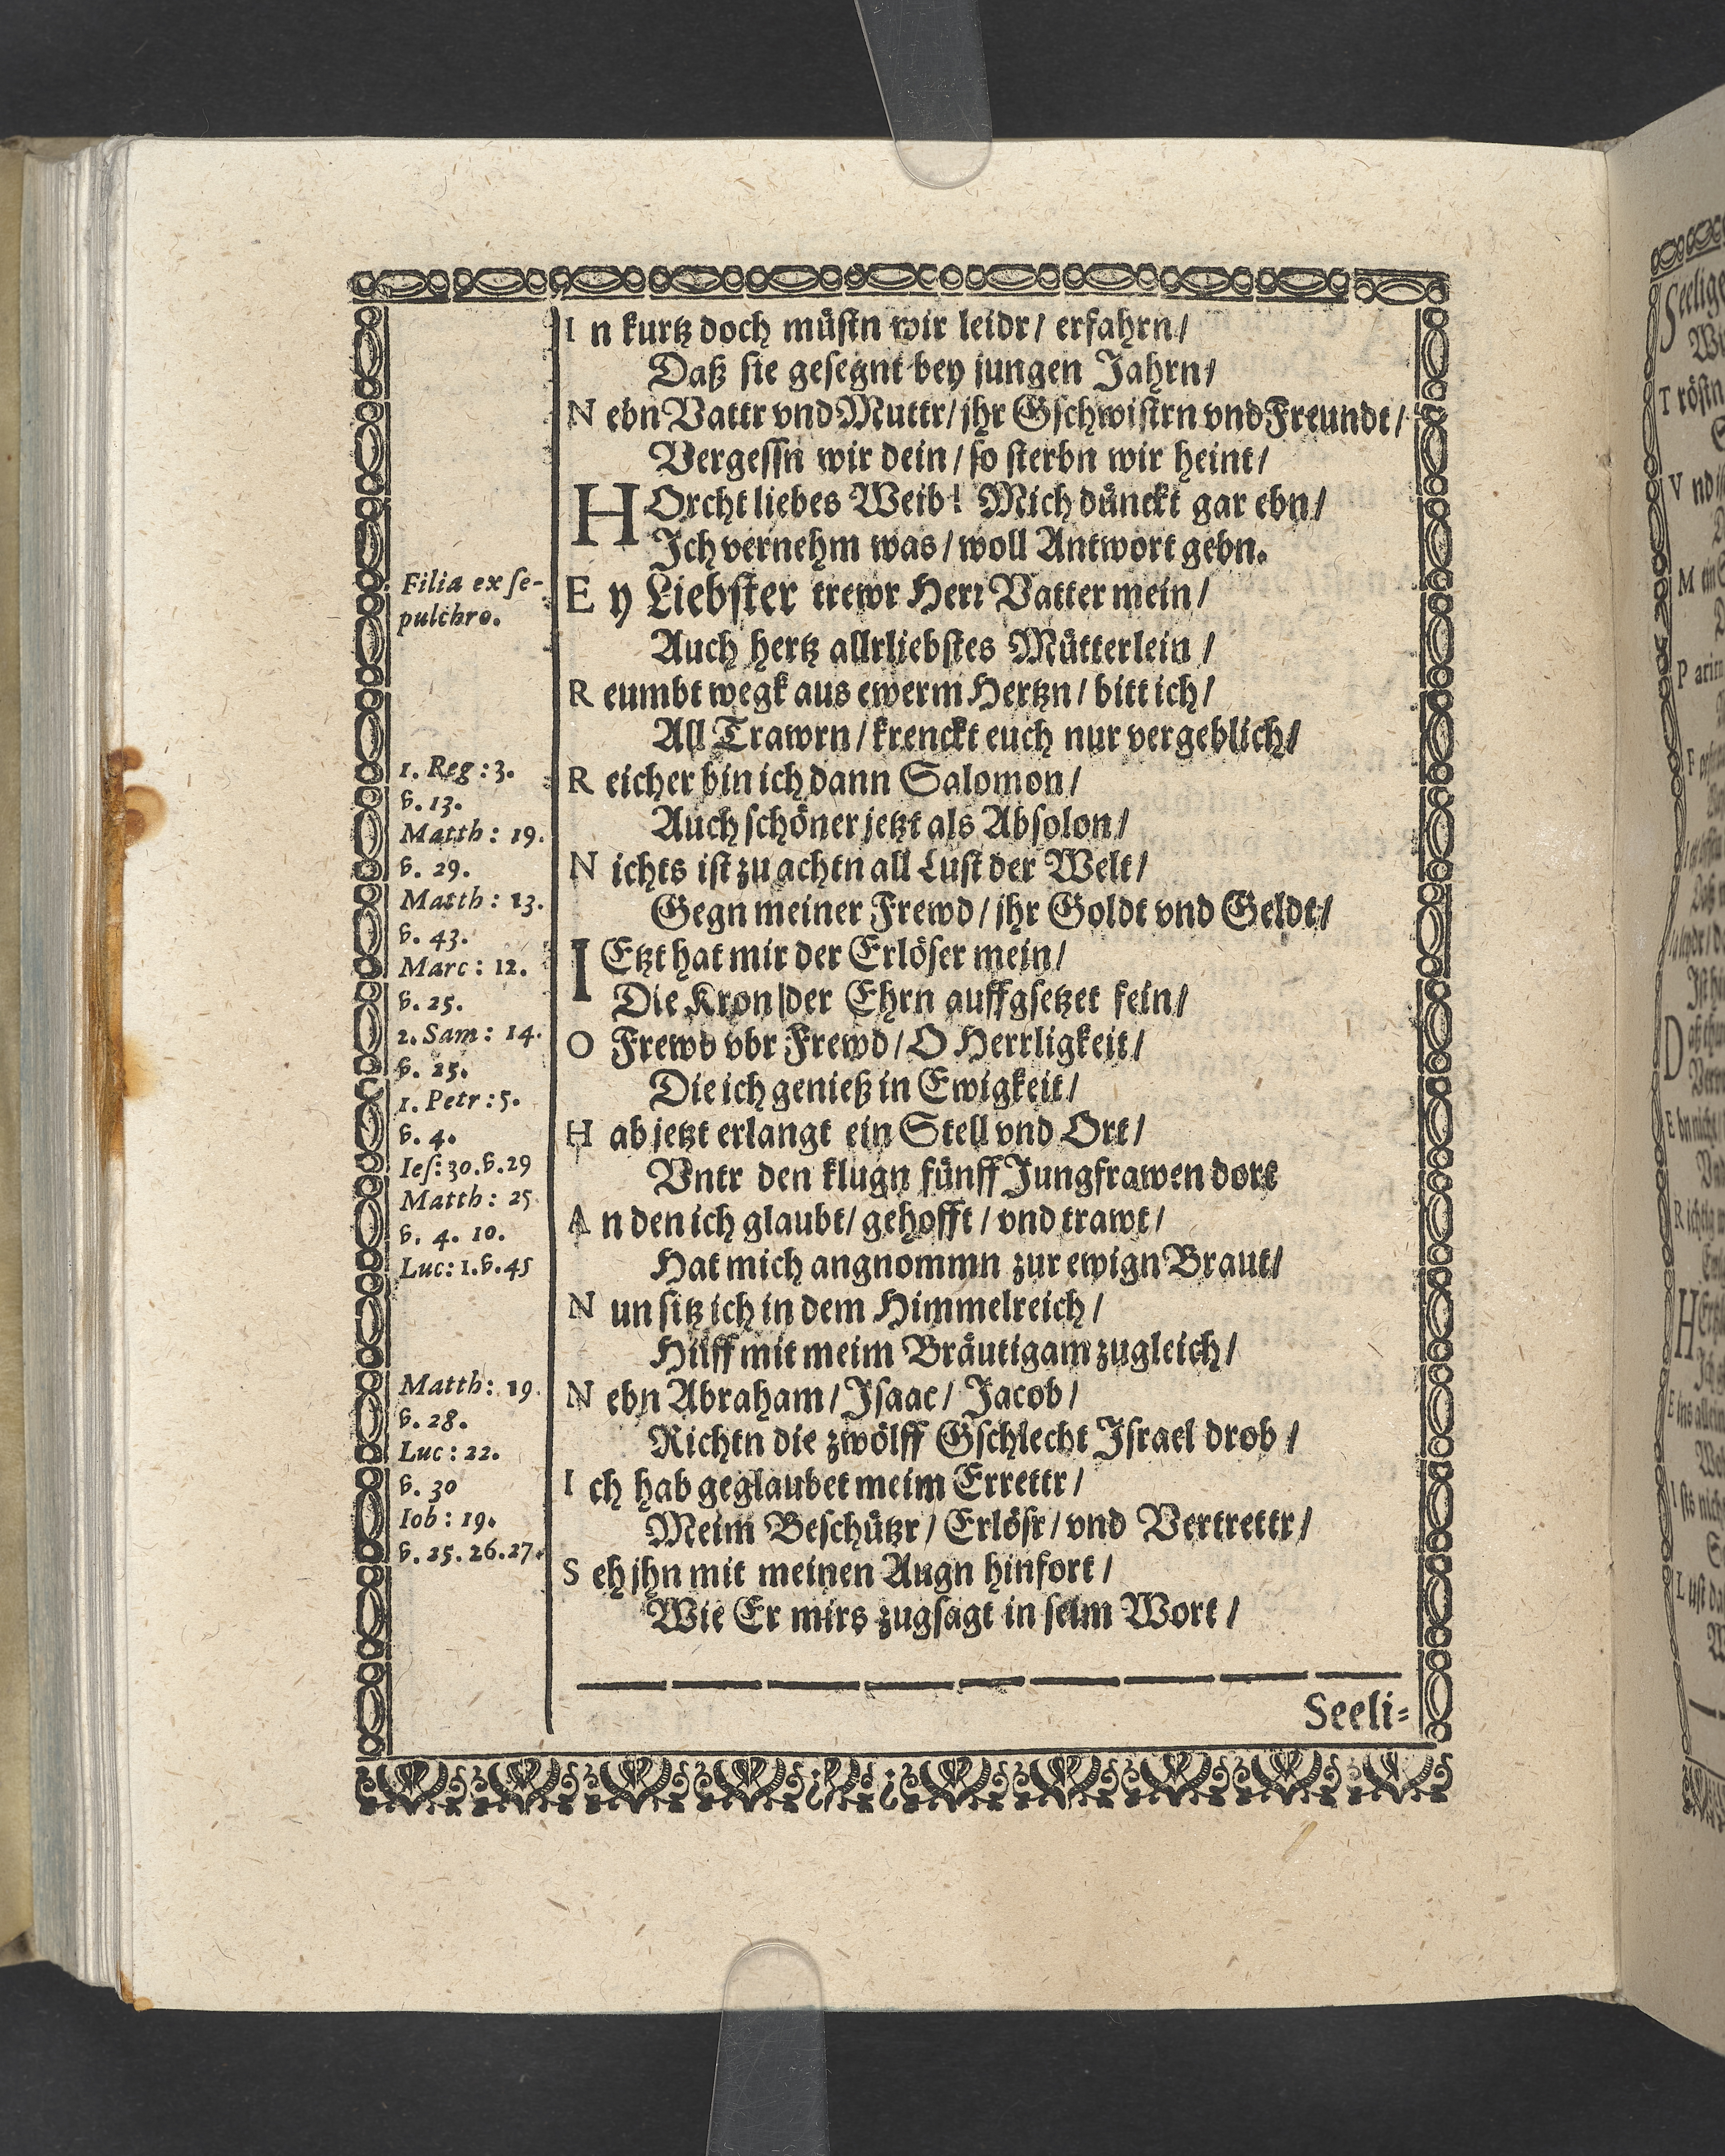 In kurtz doch müstn wir leidr/ erfahrn/
Daß sie gesegnt bey jungen Jahrn/
Nebn Vattr vnd Muttr/ jhr Gschwistrn vnd Freundt/
Vergessn wir dein/ so sterbn wir heint/
HOrcht liebes Weib! Mich dünckt gar ebn/
Jch vernehm was/ woll Antwort gebn.
Filia ex se-
pulchro.
Ey Liebster trewr Herr Vatter mein/
Auch hertz allrliebstes Mütterlein/
Reumbt wegk aus ewerm Hertzn/ bitt ich/
All Trawrn/ krenckt euch nur vergeblich/
1. Reg: 3.
v. 13.
Matth: 19.
v. 29.
Matth: 13.
v. 43.
Marc: 12.
v. 25.
2. Sam: 14.
v. 25.
1. Petr: 5.
v. 4.
Ies: 30. v. 29
Matth: 25
v. 4. 10.
Luc: 1. v. 45
Reicher bin ich dann Salomon/
Auch schöner jetzt als Absolon/
Nichts ist zu achtn all Lust der Welt/
Gegn meiner Frewd/ jhr Goldt vnd Geldt/
IEtzt hat mir der Erlöser mein/
Die Kron der Ehrn auffgsetzet fein/
O Frewd vbr Frewd/ O Herrligkeit/
Die ich genieß in Ewigkeit/
Hab jetzt erlangt ein Stell vnd Ort/
Vntr den klugn fünff Jungfrawen dort
An den ich glaubt/ gehofft/ vnd trawt/
Hat mich angnommn zur ewign Braut/
Nun sitz ich in dem Himmelreich/
Hüff mit meim Bräutigam zugleich/
Matth: 19.
v. 28.
Luc: 22.
v. 30
Iob: 19.
v. 25. 26. 27.
Nebn Abraham/ Jsaac/ Jacob/
Richtn die zwölff Gschlecht Jsrael drob/
Ich hab geglaubet meim Errettr/
Meim Beschützr/ Erlösr/ vnd Vertrettr/
Seh jhn mit meinen Augn hinfort/
Wie Er mirs zugsagt in seim Wort/
Seeli=